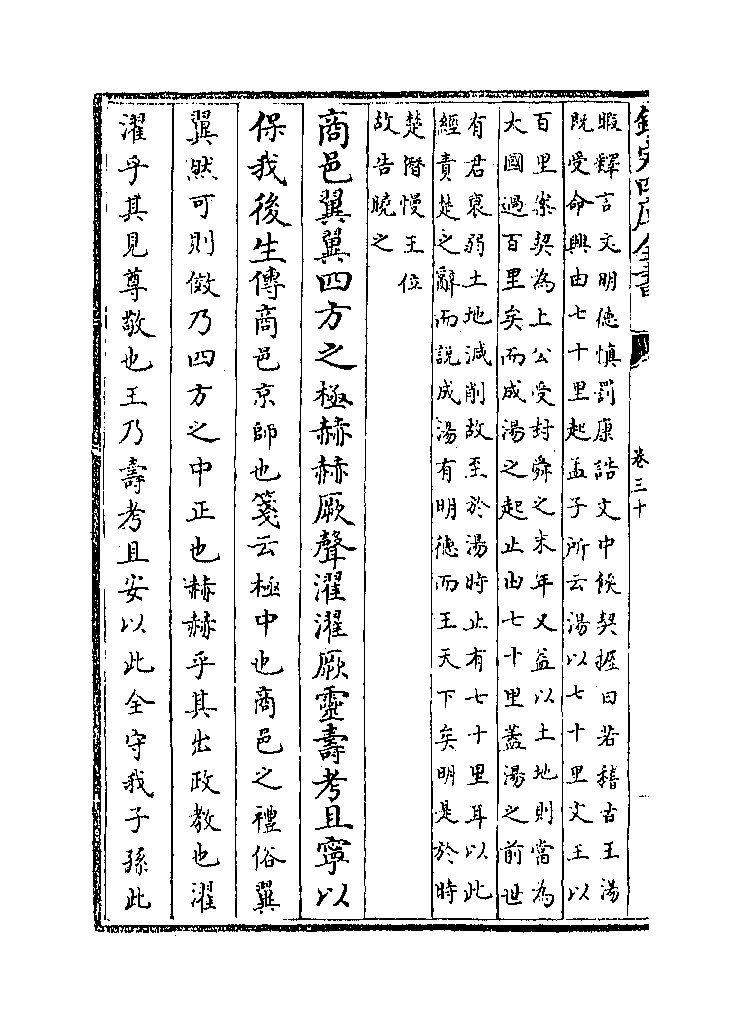 欽定四庫全書
卷三十
暇釋言文明德慎罰康誥文中候契握曰若稽古王湯
既受命興由七十里起孟子所云湯以七十里文王以
百里案契為上公受封舜之末年又益以土地則當為
大國過百里矣而成湯之起止由七十里蓋湯之前世
有君衰弱土地減削故至於湯時止有七十里耳以此
經責楚之辭而説成湯有明德而王天下矣明是於時
楚僭慢王位
故告曉之
商邑翼翼四方之極赫赫厥聲濯濯厥靈壽考且寧以
保我後生傳商邑京師也箋云極中也商邑之禮俗翼
翼然可則傚乃四方之中正也赫赫乎其出政教也濯
濯乎其見尊敬也王乃壽考且安以此全守我子孫此